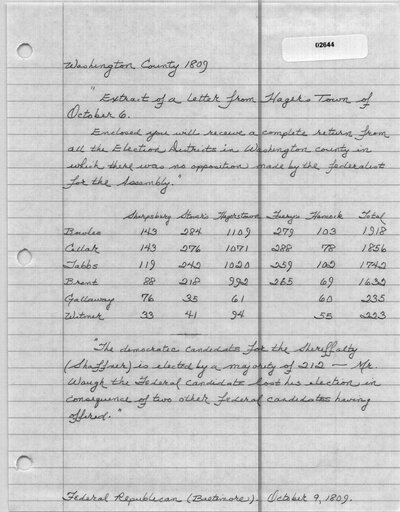 02644
Washington County 1809
"Extract of a letter from Hagers Town of
October 6.
Enclosed you will receive a complete return from
all the Election Districts in Washington county in
which there was no opposition made by the federalist
for the Assembly."
Sharpsburg Stover's Hagerstown Funry's Hancock Total
Bowles 143 284 1109 279 103 1918
Cellar 143 276 1071 288 78 1856
Tabbs 119 242 1020 259 102 1742
Brent 88 218 992 265 69 1632
Gallaway 76 35 61 60 235
Witmer 33 41 94 55 223
"The democratic candidate for the Sheriffalty
(Shaffner) is elected by a majority of 212 — Mr.
Waugh the Federal candidate lost his election in
consequence of two other Federal candidates having
offered."
Federal Republican (Baltimore). October 9, 1809.